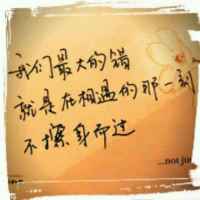 我们最大的错
就是在相遇的那一刻
不擦身而过
...not ju